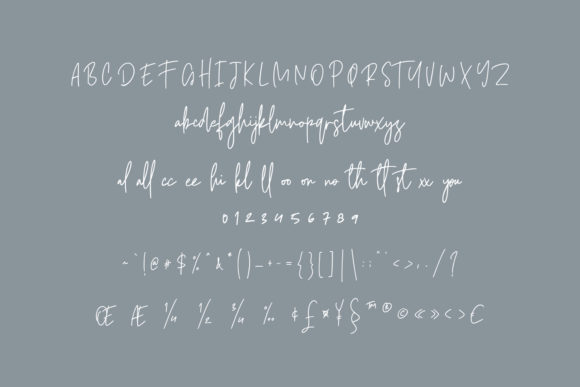 ABCDEFGHIJKLMNOPQRSTUVWXYZ
abcdefghijklmnopqrstuvwxyz
al all cc ee hi kl ll oo on no th tl st xx you
0 1 2 3 4 5 6 7 8 9
~ ` ! @ # $ % ^ & * ( ) _ + - = { } [ ] | \ : ; " ' < > , . / ?
Œ Æ ¼ ½ ¾ ‰ ¢ £ ¤ ¥ § ™ ® © « » ‹ › €